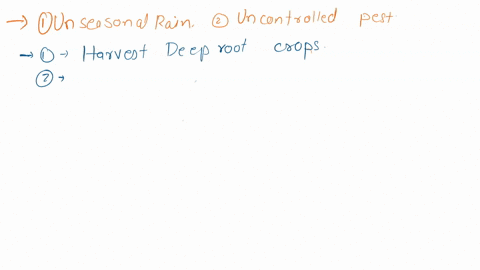 → ① Unseasonal Rain. ② Uncontrolled pest
→ ① → Harvest Deep root crops.
② →